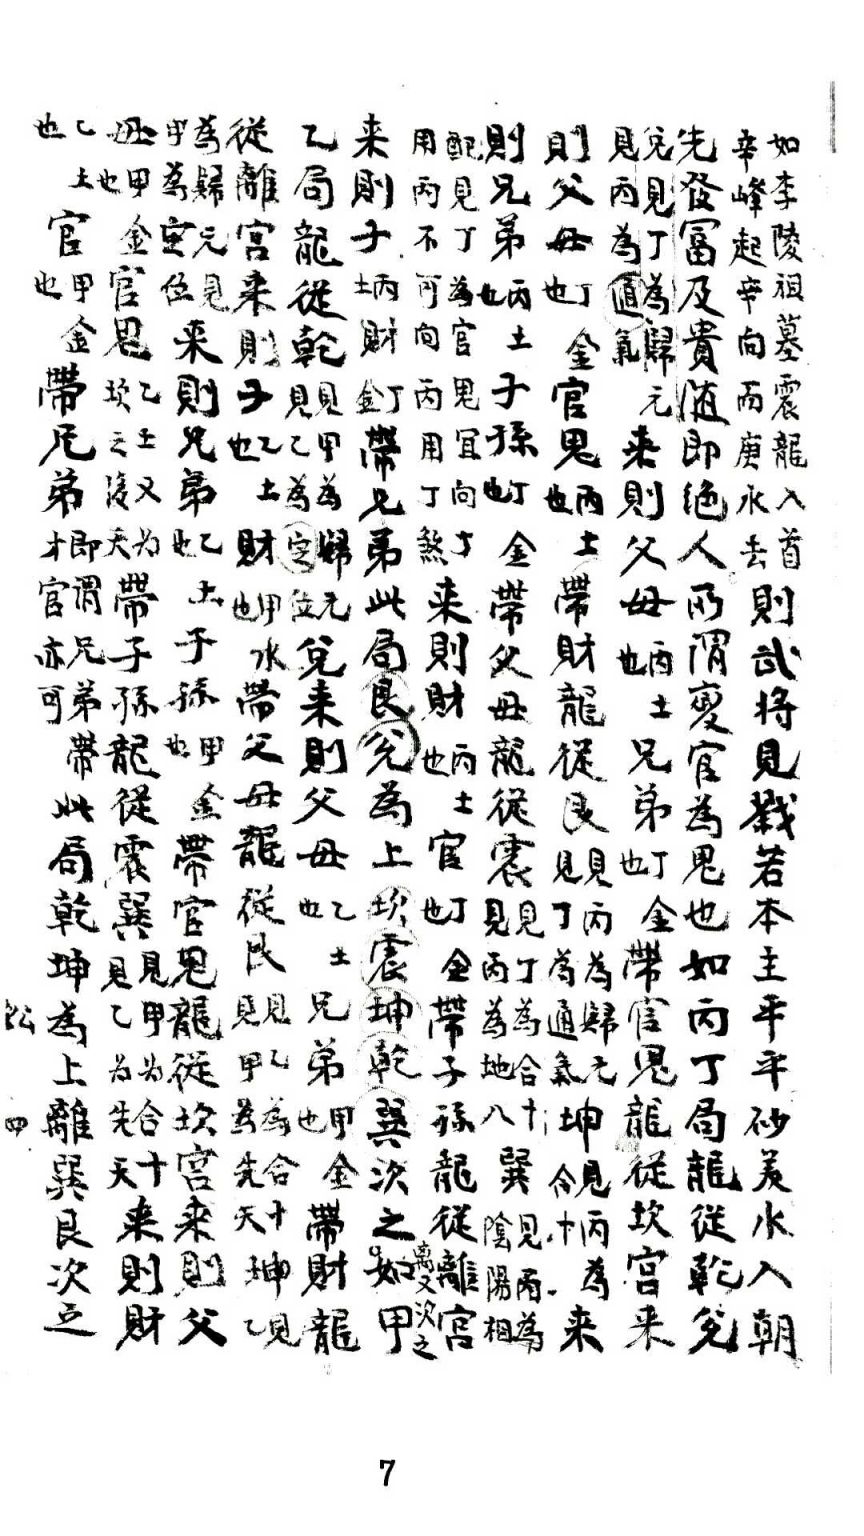 如李陵祖墓震龍入首辛峰起辛向而庚水去則武将見戮若本主平平砂美水入朝
先發冨及貴随即絶人所謂变官為鬼也如丙丁局龍從乾兌
兌見丁為歸元見丙為通氣来則父毋丙土也兄弟丁金也帶官鬼龍從坎宫来
則父毋丁金也官鬼丙土也帶財龍從艮見丙為歸元見丁為通氣坤見丙為合十来
則兄弟丙土也子孫丁金也帶父毋龍從震見丁為合十見丙為地八巽見丙為陰陽相
配見丁為官鬼冝向丁用丙不可向丙用丁煞来則財丙土也官丁金也帶子孫龍從離宫
来則子丙土財丁金帶兄弟此局艮兌為上坎震坤乾巽次之離又次之如甲
乙局龍從乾見甲為歸元見乙為定位兌来則父毋乙土也兄弟甲金也帶財龍
從離宫来則子乙土也財甲水也帶父毋龍從艮見乙為合十見甲為先天坤見乙
為歸元見甲為定位来則兄弟乙土也子孫甲金也帶官鬼龍從坎宫来則父
毋甲金也官鬼乙土又为坎之後天帶子孫龍從震巽見甲为合十見乙为先天来則財
乙土也官甲金也帶兄弟即謂兄弟帶才官亦可此局乾坤為上離巽艮次之
四
7